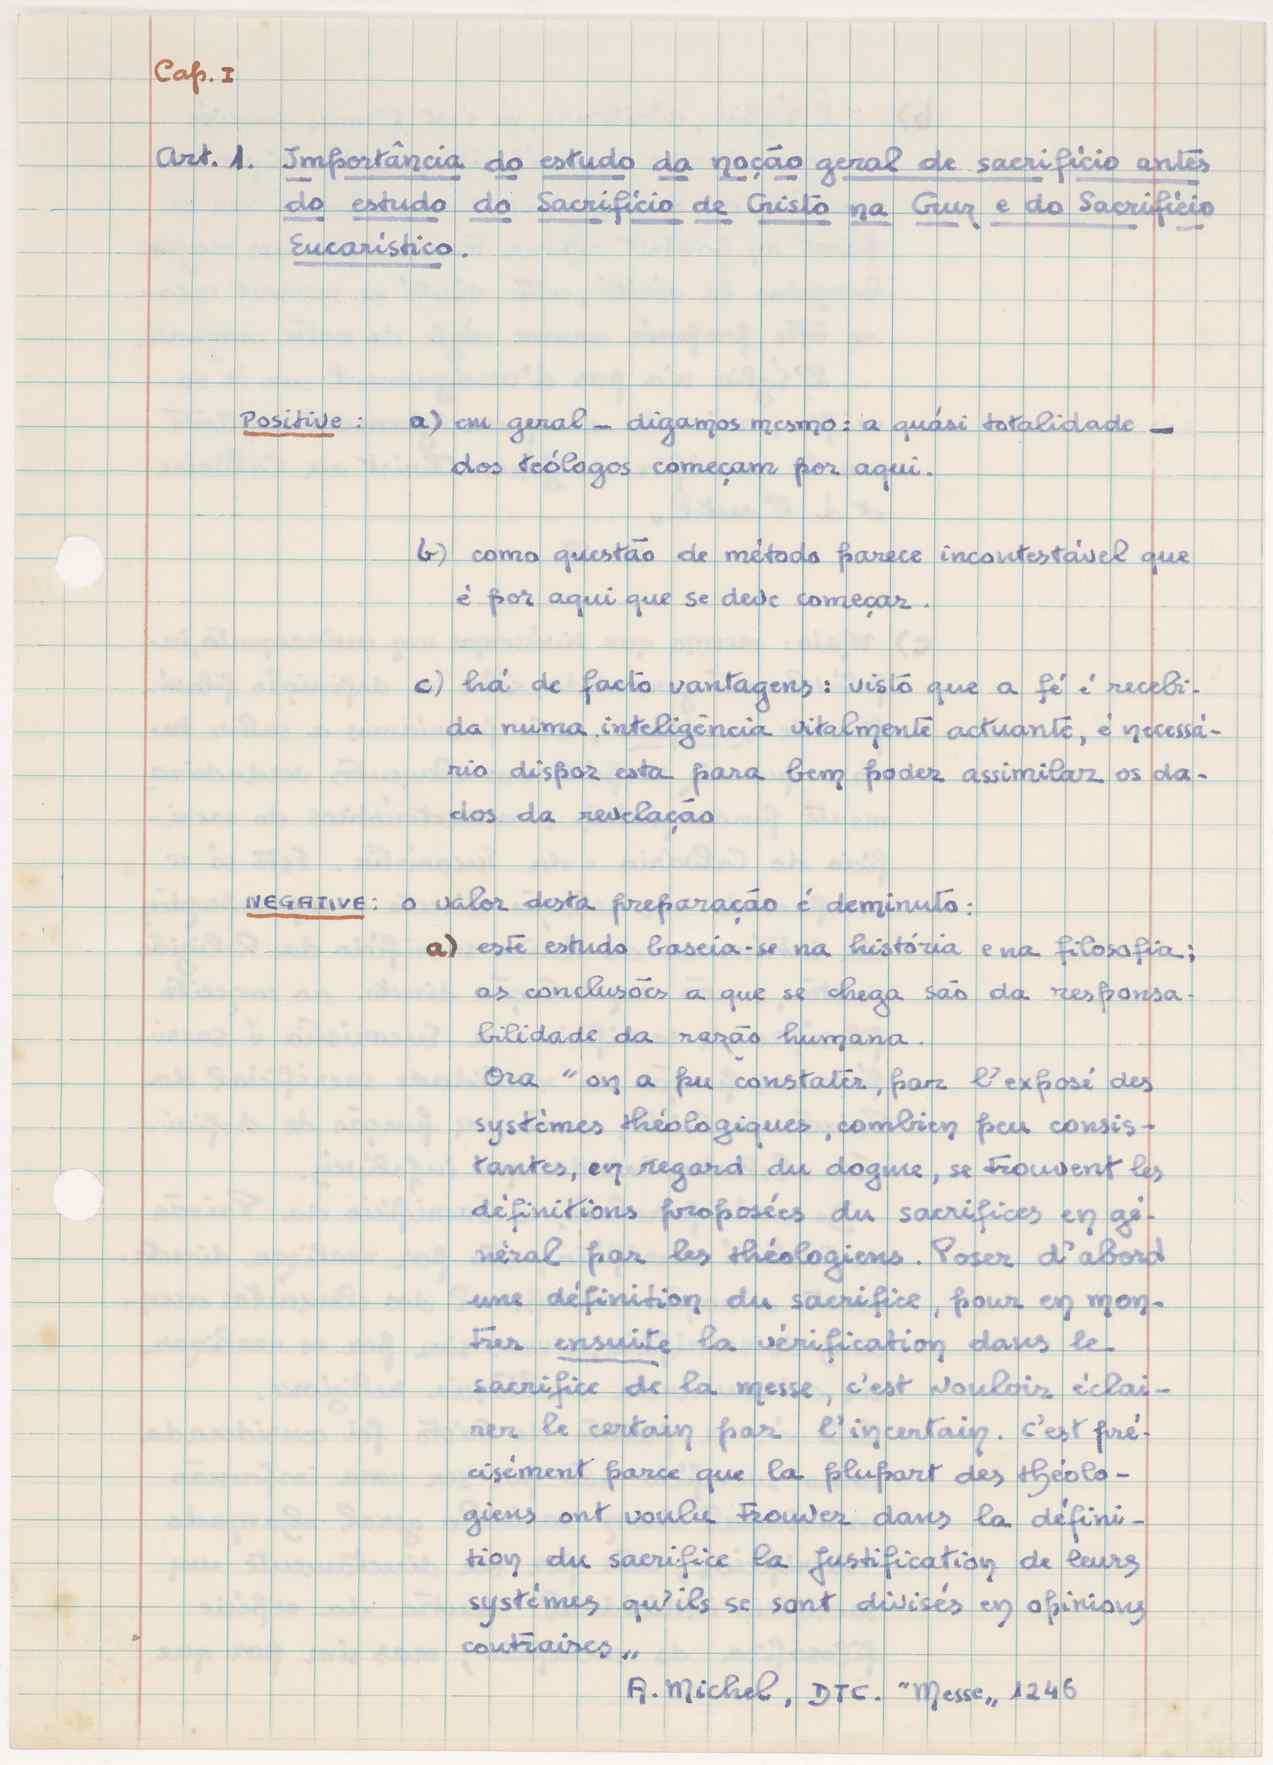 Cap. I
Art. 1. Importância do estudo da noção geral de sacrifício antes
do estudo do Sacrifício de Cristo na Cruz e do Sacrifício
Eucarístico.
Positive: a) em geral – digamos mesmo: a quási totalidade –
dos teólogos começam por aqui.
b) como questão de método parece incontestável que
é por aqui que se deve começar.
c) há de facto vantagens: visto que a fé é recebi-
da numa inteligência vitalmente actuante, é necessá-
rio dispor esta para bem poder assimilar os da-
dos da revelação
NEGATIVE: o valor desta preparação é deminuto:
a) este estudo baseia-se na história e na filosofia;
as conclusões a que se chega são da responsa-
bilidade da razão humana.
Ora "on a pu constater, par l'exposé des
systèmes théologiques, combien peu consis-
tantes, en regard du dogme, se trouvent les
définitions proposées du sacrifices en gé-
néral par les théologiens. Poser d'abord
une définition du sacrifice, pour en mon-
trer ensuite la vérification dans le
sacrifice de la messe, c'est vouloir éclai-
rer le certain par l'incertain. C'est pré-
cisément parce que la plupart des théolo-
giens ont voulu trouver dans la défini-
tion du sacrifice la justification de leurs
systémes qu'ils se sont divisés en opinions
contraires„
A. Michel, DTC. "Messe„ 1246